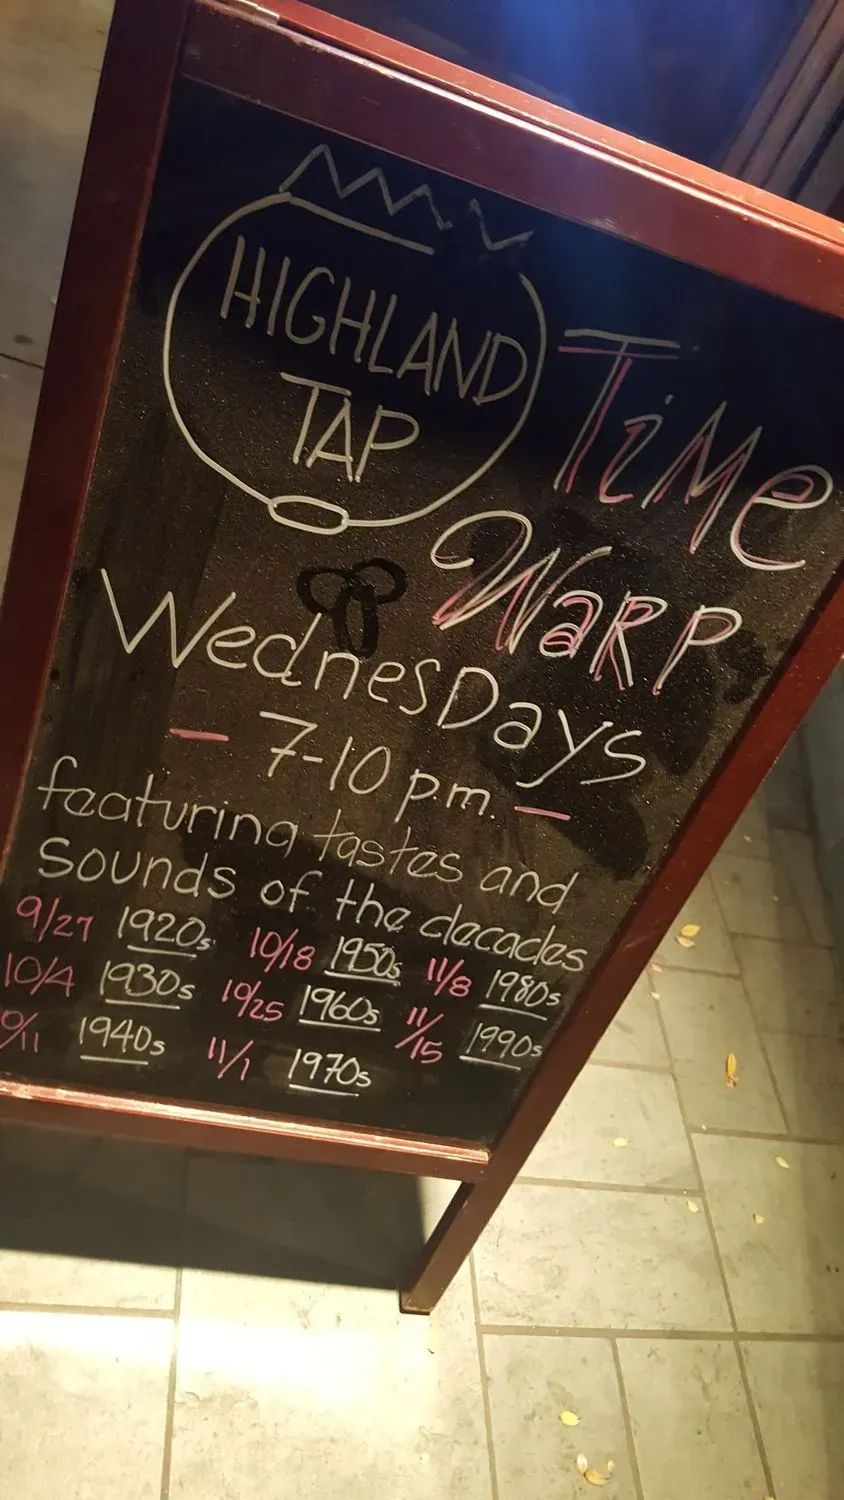 HIGHLAND
TAP
TiMe
WaRP
WednesDays
- 7-10 p.m. -
featuring tastes and
sounds of the decades
9/27 1920s 10/18 1950s 11/8 1980s
10/4 1930s 10/25 1960s 11/15 1990s
0/11 1940s 11/1 1970s